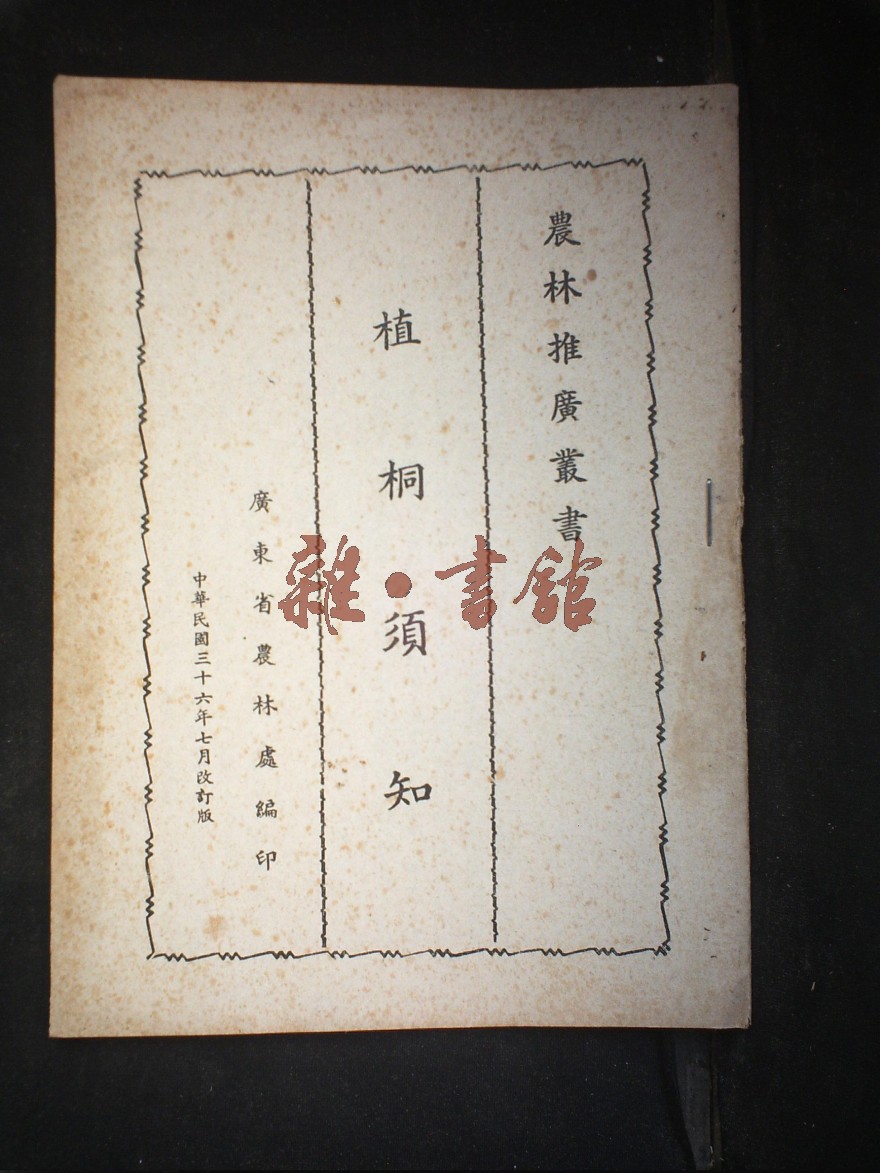 農林推廣叢書
植桐須知
廣東省農林處編印
中華民國三十六年七月改訂版
雜·書館